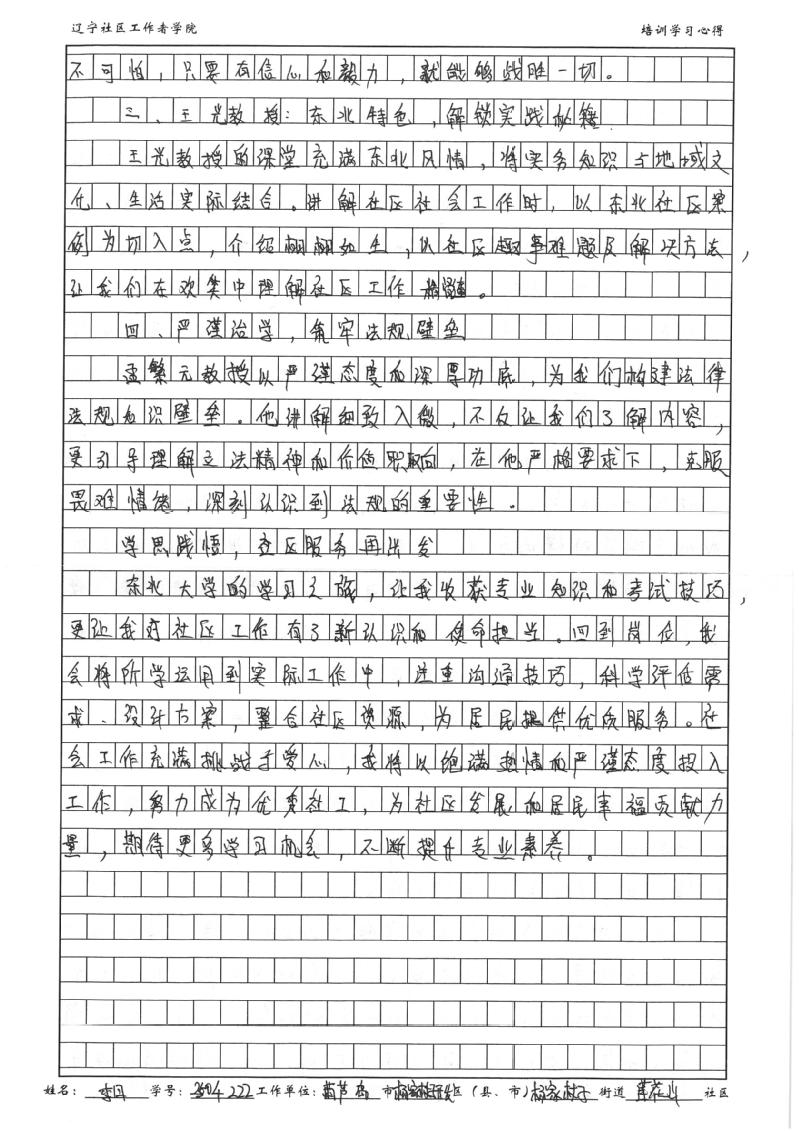 辽宁社区工作者学院 培训学习心得
不可怕，只要有信心和毅力，就能够战胜一切。
三、王光教授：东北特色，解锁实践秘籍
王光教授的课堂充满东北风情，将实务知识与地域文
化、生活实际结合。讲解社区社会工作时，以东北社区案
例为切入点，介绍栩栩如生，以社区趣事难题及解决方法，
让我们在欢笑中理解社区工作精髓。
四、严谨治学，筑牢法规壁垒
孟繁元教授以严谨态度和深厚功底，为我们构建法律
法规知识壁垒。他讲解细致入微，不仅让我们了解内容，
更引导理解立法精神和价值取向，在他严格要求下，克服
畏难情绪，深刻认识到法规的重要性。
学思践悟，社区服务再出发
东北大学的学习之旅，让我收获专业知识和考试技巧，
更让我对社区工作有了新认识和使命担当。回到岗位，我
会将所学运用到实际工作中，注重沟通技巧，科学评估需
求、设计方案，整合社区资源，为居民提供优质服务。社
会工作充满挑战于爱心，我将以饱满热情和严谨态度投入
工作，努力成为优秀社工，为社区发展和居民幸福贡献力
量，期待更多学习机会，不断提升专业素养。
姓名： 学号： 工作单位：葫芦岛 市 区（县、市）杨家杖子 街道 莲花山 社区